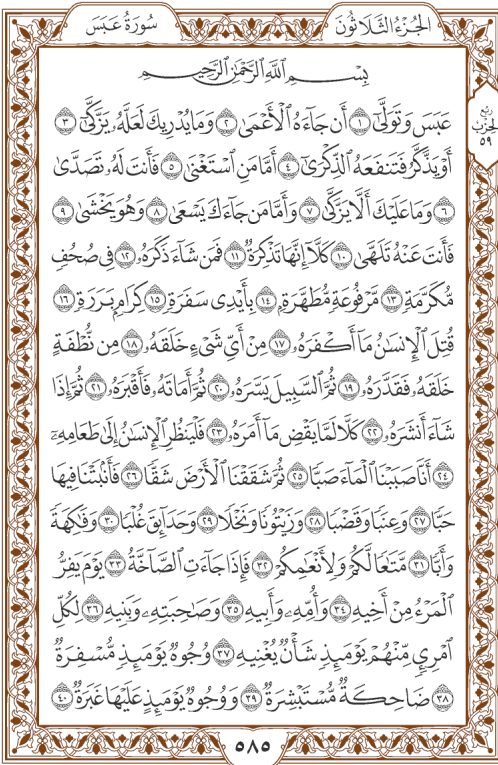 الجُزْءُ الثَّلَاثُونَ سُورَةُ عَبَسَ
بِسْمِ اللَّهِ الرَّحْمَٰنِ الرَّحِيمِ
عَبَسَ وَتَوَلَّىٰٓ ١ أَن جَآءَهُ ٱلْأَعْمَىٰ ٢ وَمَا يُدْرِيكَ لَعَلَّهُۥ يَزَّكَّىٰٓ ٣
أَوْ يَذَّكَّرُ فَتَنفَعَهُ ٱلذِّكْرَىٰٓ ٤ أَمَّا مَنِ ٱسْتَغْنَىٰ ٥ فَأَنتَ لَهُۥ تَصَدَّىٰ
٦ وَمَا عَلَيْكَ أَلَّا يَزَّكَّىٰ ٧ وَأَمَّا مَن جَآءَكَ يَسْعَىٰ ٨ وَهُوَ يَخْشَىٰ ٩
فَأَنتَ عَنْهُ تَلَهَّىٰ ١٠ كَلَّآ إِنَّهَا تَذْكِرَةٌ ١١ فَمَن شَآءَ ذَكَرَهُۥ ١٢ فِى صُحُفٍ
مُّكَرَّمَةٍ ١٣ مَّرْفُوعَةٍ مُّطَهَّرَةٍۭ ١٤ بِأَيْدِى سَفَرَةٍ ١٥ كِرَامٍۭ بَرَرَةٍ ١٦
قُتِلَ ٱلْإِنسَٰنُ مَآ أَكْفَرَهُۥ ١٧ مِنْ أَىِّ شَىْءٍ خَلَقَهُۥ ١٨ مِن نُّطْفَةٍ
خَلَقَهُۥ فَقَدَّرَهُۥ ١٩ ثُمَّ ٱلسَّبِيلَ يَسَّرَهُۥ ٢٠ ثُمَّ أَمَاتَهُۥ فَأَقْبَرَهُۥ ٢١ ثُمَّ إِذَا
شَآءَ أَنشَرَهُۥ ٢٢ كَلَّا لَمَّا يَقْضِ مَآ أَمَرَهُۥ ٢٣ فَلْيَنظُرِ ٱلْإِنسَٰنُ إِلَىٰ طَعَامِهِۦٓ
٢٤ أَنَّا صَبَبْنَا ٱلْمَآءَ صَبًّا ٢٥ ثُمَّ شَقَقْنَا ٱلْأَرْضَ شَقًّا ٢٦ فَأَنۢبَتْنَا فِيهَا
حَبًّا ٢٧ وَعِنَبًا وَقَضْبًا ٢٨ وَزَيْتُونًا وَنَخْلًا ٢٩ وَحَدَآئِقَ غُلْبًا ٣٠ وَفَٰكِهَةً
وَأَبًّا ٣١ مَّتَٰعًا لَّكُمْ وَلِأَنْعَٰمِكُمْ ٣٢ فَإِذَا جَآءَتِ ٱلصَّآخَّةُ ٣٣ يَوْمَ يَفِرُّ
ٱلْمَرْءُ مِنْ أَخِيهِ ٣٤ وَأُمِّهِۦ وَأَبِيهِ ٣٥ وَصَٰحِبَتِهِۦ وَبَنِيهِ ٣٦ لِكُلِّ
ٱمْرِئٍ مِّنْهُمْ يَوْمَئِذٍ شَأْنٌ يُغْنِيهِ ٣٧ وُجُوهٌ يَوْمَئِذٍ مُّسْفِرَةٌ
٣٨ ضَاحِكَةٌ مُّسْتَبْشِرَةٌ ٣٩ وَوُجُوهٌ يَوْمَئِذٍ عَلَيْهَا غَبَرَةٌ ٤٠
رُبْعُ
الحِزْب
٥٩
٥٨٥